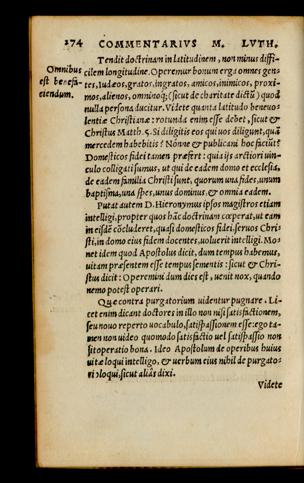 274 COMMENTARIVS M. LVTH.
Tendit doctrinam in latitudinem, non minus diffi-
Omnibus
est benefa-
ciendum.
cilem longitudine. Operemur bonum erga omnes gen-
tes, Iudæos, gratos, ingratos, amicos, inimicos, proxi-
mos, alienos, omninoq; (sicut de charitate dictū) quod
nulla persona ducitur. Videte quanta latitudo beneuo-
lentiæ Christianæ: rotunda enim esse debet, sicut &
Christus Matth. 5. Si diligitis eos qui uos diligunt, quā
mercedem habebitis? Nónne & publicani hoc faciūt?
Domesticos fidei tamen præfert: quia ijs arctiori uin-
culo colligati sumus, ut qui de eadem domo et ecclesia,
de eadem familia Christi sunt, quorum una fides, unum
baptisma, una spes, unus dominus, & omnia eadem.
Putat autem D. Hieronymus ipsos magistros etiam
intelligi, propter quos hāc doctrinam cœperat, ut eam
in eisdē cōcluderet, quasi domesticos fidei, seruos Chri-
sti, in domo eius fidem docentes, uoluerit intelligi. Mo-
net idem quod Apostolus dicit, dum tempus habemus,
uitam præsentem esse tempus sementis: sicut & Chri-
stus dicit: Operemini dum dies est, uenit nox, quando
nemo potest operari.
Quæ contra purgatorium uidentur pugnare. Li-
cet enim dicant doctores in illo non nisi satisfactionem,
seu nouo reperto uocabulo, satispassionem esse: ego ta-
men non uideo quomodo satisfactio uel satispassio non
sit operatio bona. Ideo Apostolum de operibus huius
uitæ loqui intelligo, & uerbum eius nihil de purgato-
rio loqui, sicut aliâs dixi.
Videte